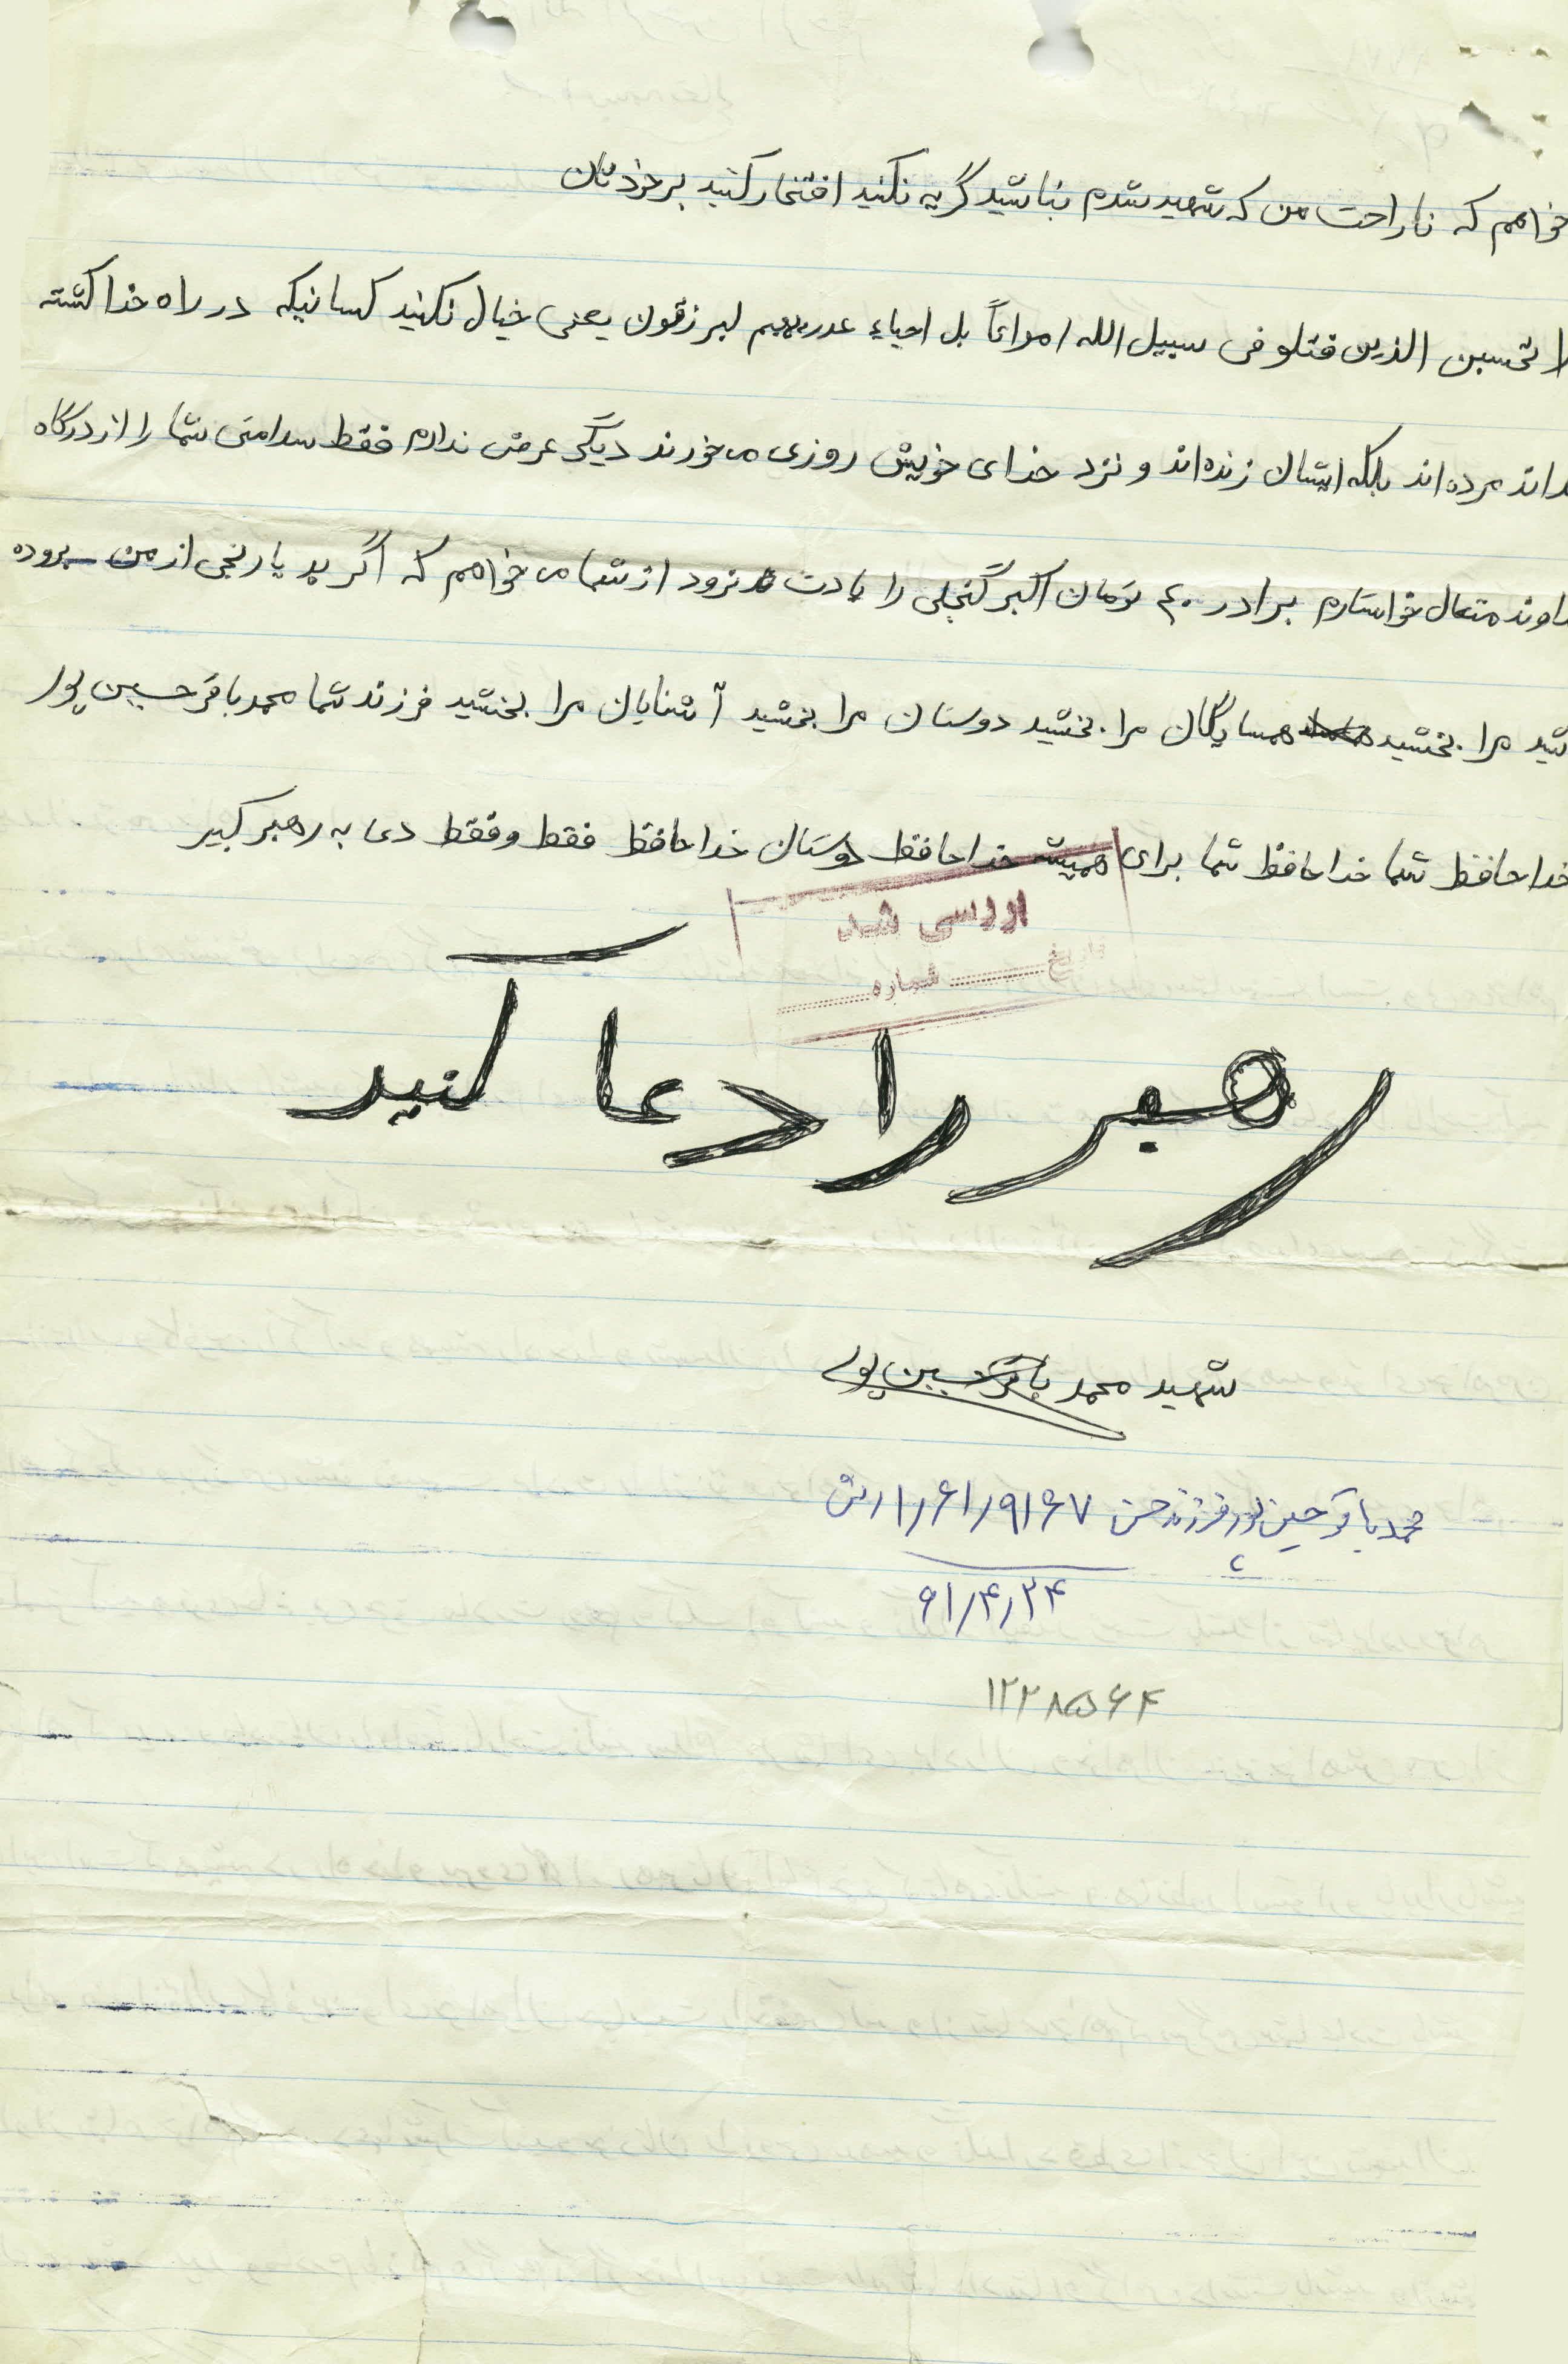 خواهم که ناراحت من که شهید شدم نباشید گریه نکنید افتخار کنید بر خودتان
لا تحسبن الذین قتلو فی سبیل الله امواتاً بل احیاء عندربهم یرزقون یعنی خیال نکنید کسانیکه در راه خدا کشته
شده‌اند مرده‌اند بلکه ایشان زنده‌اند و نزد خدای خویش روزی می‌خورند دیگر عرضی ندارم فقط سلامتی شما را از درگاه
خداوند متعال خواستارم برادر ۴۰ تومان اکبر گنجلی را یادت نرود از شما می خواهم که اگر بد یا رنجی از من بروده
شید مرا بخشید همسایگان مرا بخشید دوستان مرا بخشید آشنایان مرا بخشید فرزند شما محمد باقر حسین پور
خداحافظ شما خداحافظ شما برای همیشه خداحافظ دوستان خداحافظ فقط و فقط دعا به رهبر کبیر
بررسی شد
تاریخ شماره
رهبر را دعا کنید
شهید محمد باقر حسین پور
محمد باقر حسین پور فرزند حسن ۱/۶۱/۹۱۶۷/ارتش
۹۱/۴/۲۴
۱۲۲۸۵۶۴